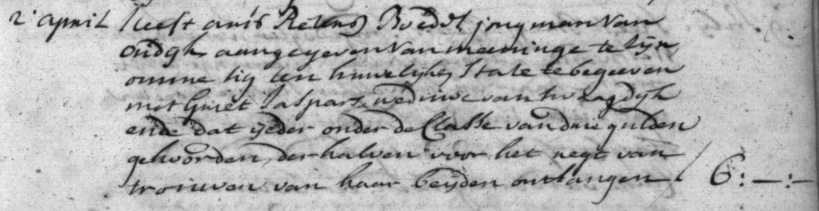 2 april heeft Jan Retens Boedel jongman van
oudijk aangegeven van meeninge te sijn
omme sig ten huwelijke State te begeeven
met Griet Jaspars weduwe van twaagdijk
ende dat ijder onder de Classe van drie gulden
gehoorden, derhalven voor het regt van
trouwen van haar beijden ontfangen 6:—:—